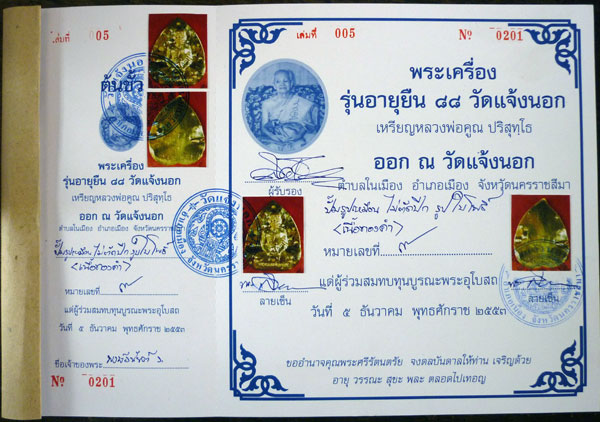 เล่มที่ 005
ต้นขั้ว
พระเครื่อง
รุ่นอายุยืน ๘๘ วัดแจ้งนอก
เหรียญหลวงพ่อคูณ ปริสุทฺโธ
ออก ณ วัดแจ้งนอก
ตำบลในเมือง อำเภอเมือง จังหวัดนครราชสีมา
ปั๊มรูปเหมือน ไม่ตัดปีก รูปใบโพธิ์
(เนื้อทองคำ)
หมายเลขที่ ๓
แด่ผู้ร่วมสมทบทุนบูรณะพระอุโบสถ
วันที่ ๕ ธันวาคม พุทธศักราช ๒๕๕๓
ชื่อเจ้าของพระ
Nº 0201
เล่มที่ 005 Nº 0201
พระเครื่อง
รุ่นอายุยืน ๘๘ วัดแจ้งนอก
เหรียญหลวงพ่อคูณ ปริสุทฺโธ
ออก ณ วัดแจ้งนอก
ผู้รับรอง
ตำบลในเมือง อำเภอเมือง จังหวัดนครราชสีมา
ปั๊มรูปเหมือน ไม่ตัดปีก รูปใบโพธิ์
(เนื้อทองคำ)
หมายเลขที่ ๓
แด่ผู้ร่วมสมทบทุนบูรณะพระอุโบสถ
ลายเซ็น
ลายเซ็น
วันที่ ๕ ธันวาคม พุทธศักราช ๒๕๕๓
ขออำนาจคุณพระศรีรัตนตรัย จงดลบันดาลให้ท่าน เจริญด้วย
อายุ วรรณะ สุขะ พละ ตลอดไปเทอญ